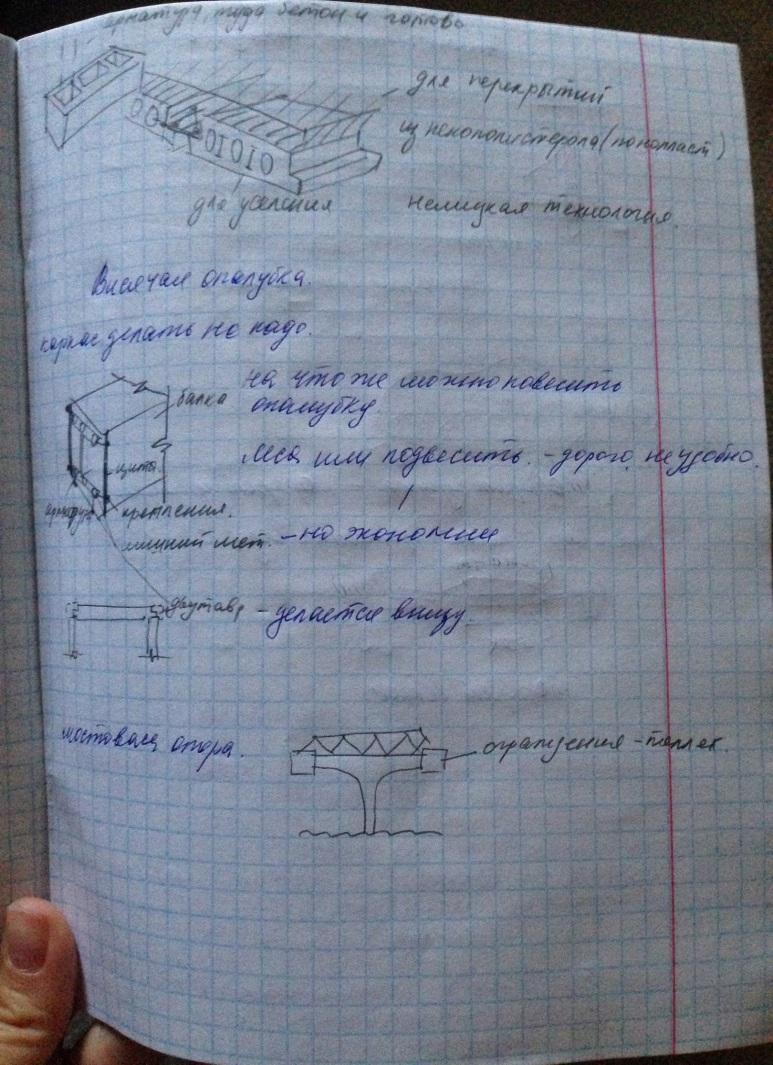 арматура, туда бетон и готово
для перекрытий
из пенополистерола (пенопласт)
для усиления
немицкая технология.
Висячая опалубка.
каркас делать не надо.
на что же можно повесить
опалубку.
балка
леса или подвесить. - дорого, неудобно.
щиты
арматура
крепления.
лишний мет. - не экономия
двутавр - делается внизу.
мостовая опора.
ограждения - паллет.